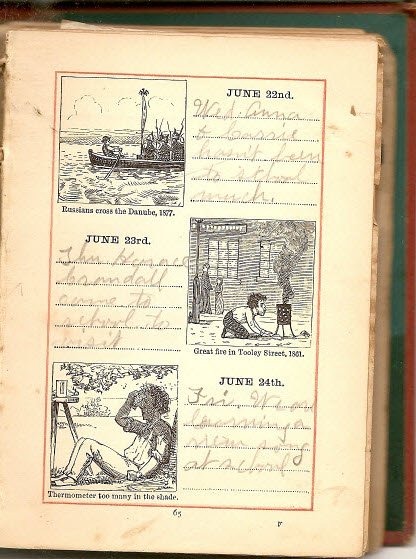 JUNE 22nd.
Wed. Anna
& Carrie
hasn't been
to school
much.
Russians cross the Danube, 1877.
JUNE 23rd.
Thu. Horace
Crandall
came to
school to
visit
Great fire in Tooley Street, 1861.
JUNE 24th.
Fri. We are
learning a
new song
at school
Thermometer too many in the shade.
65
F